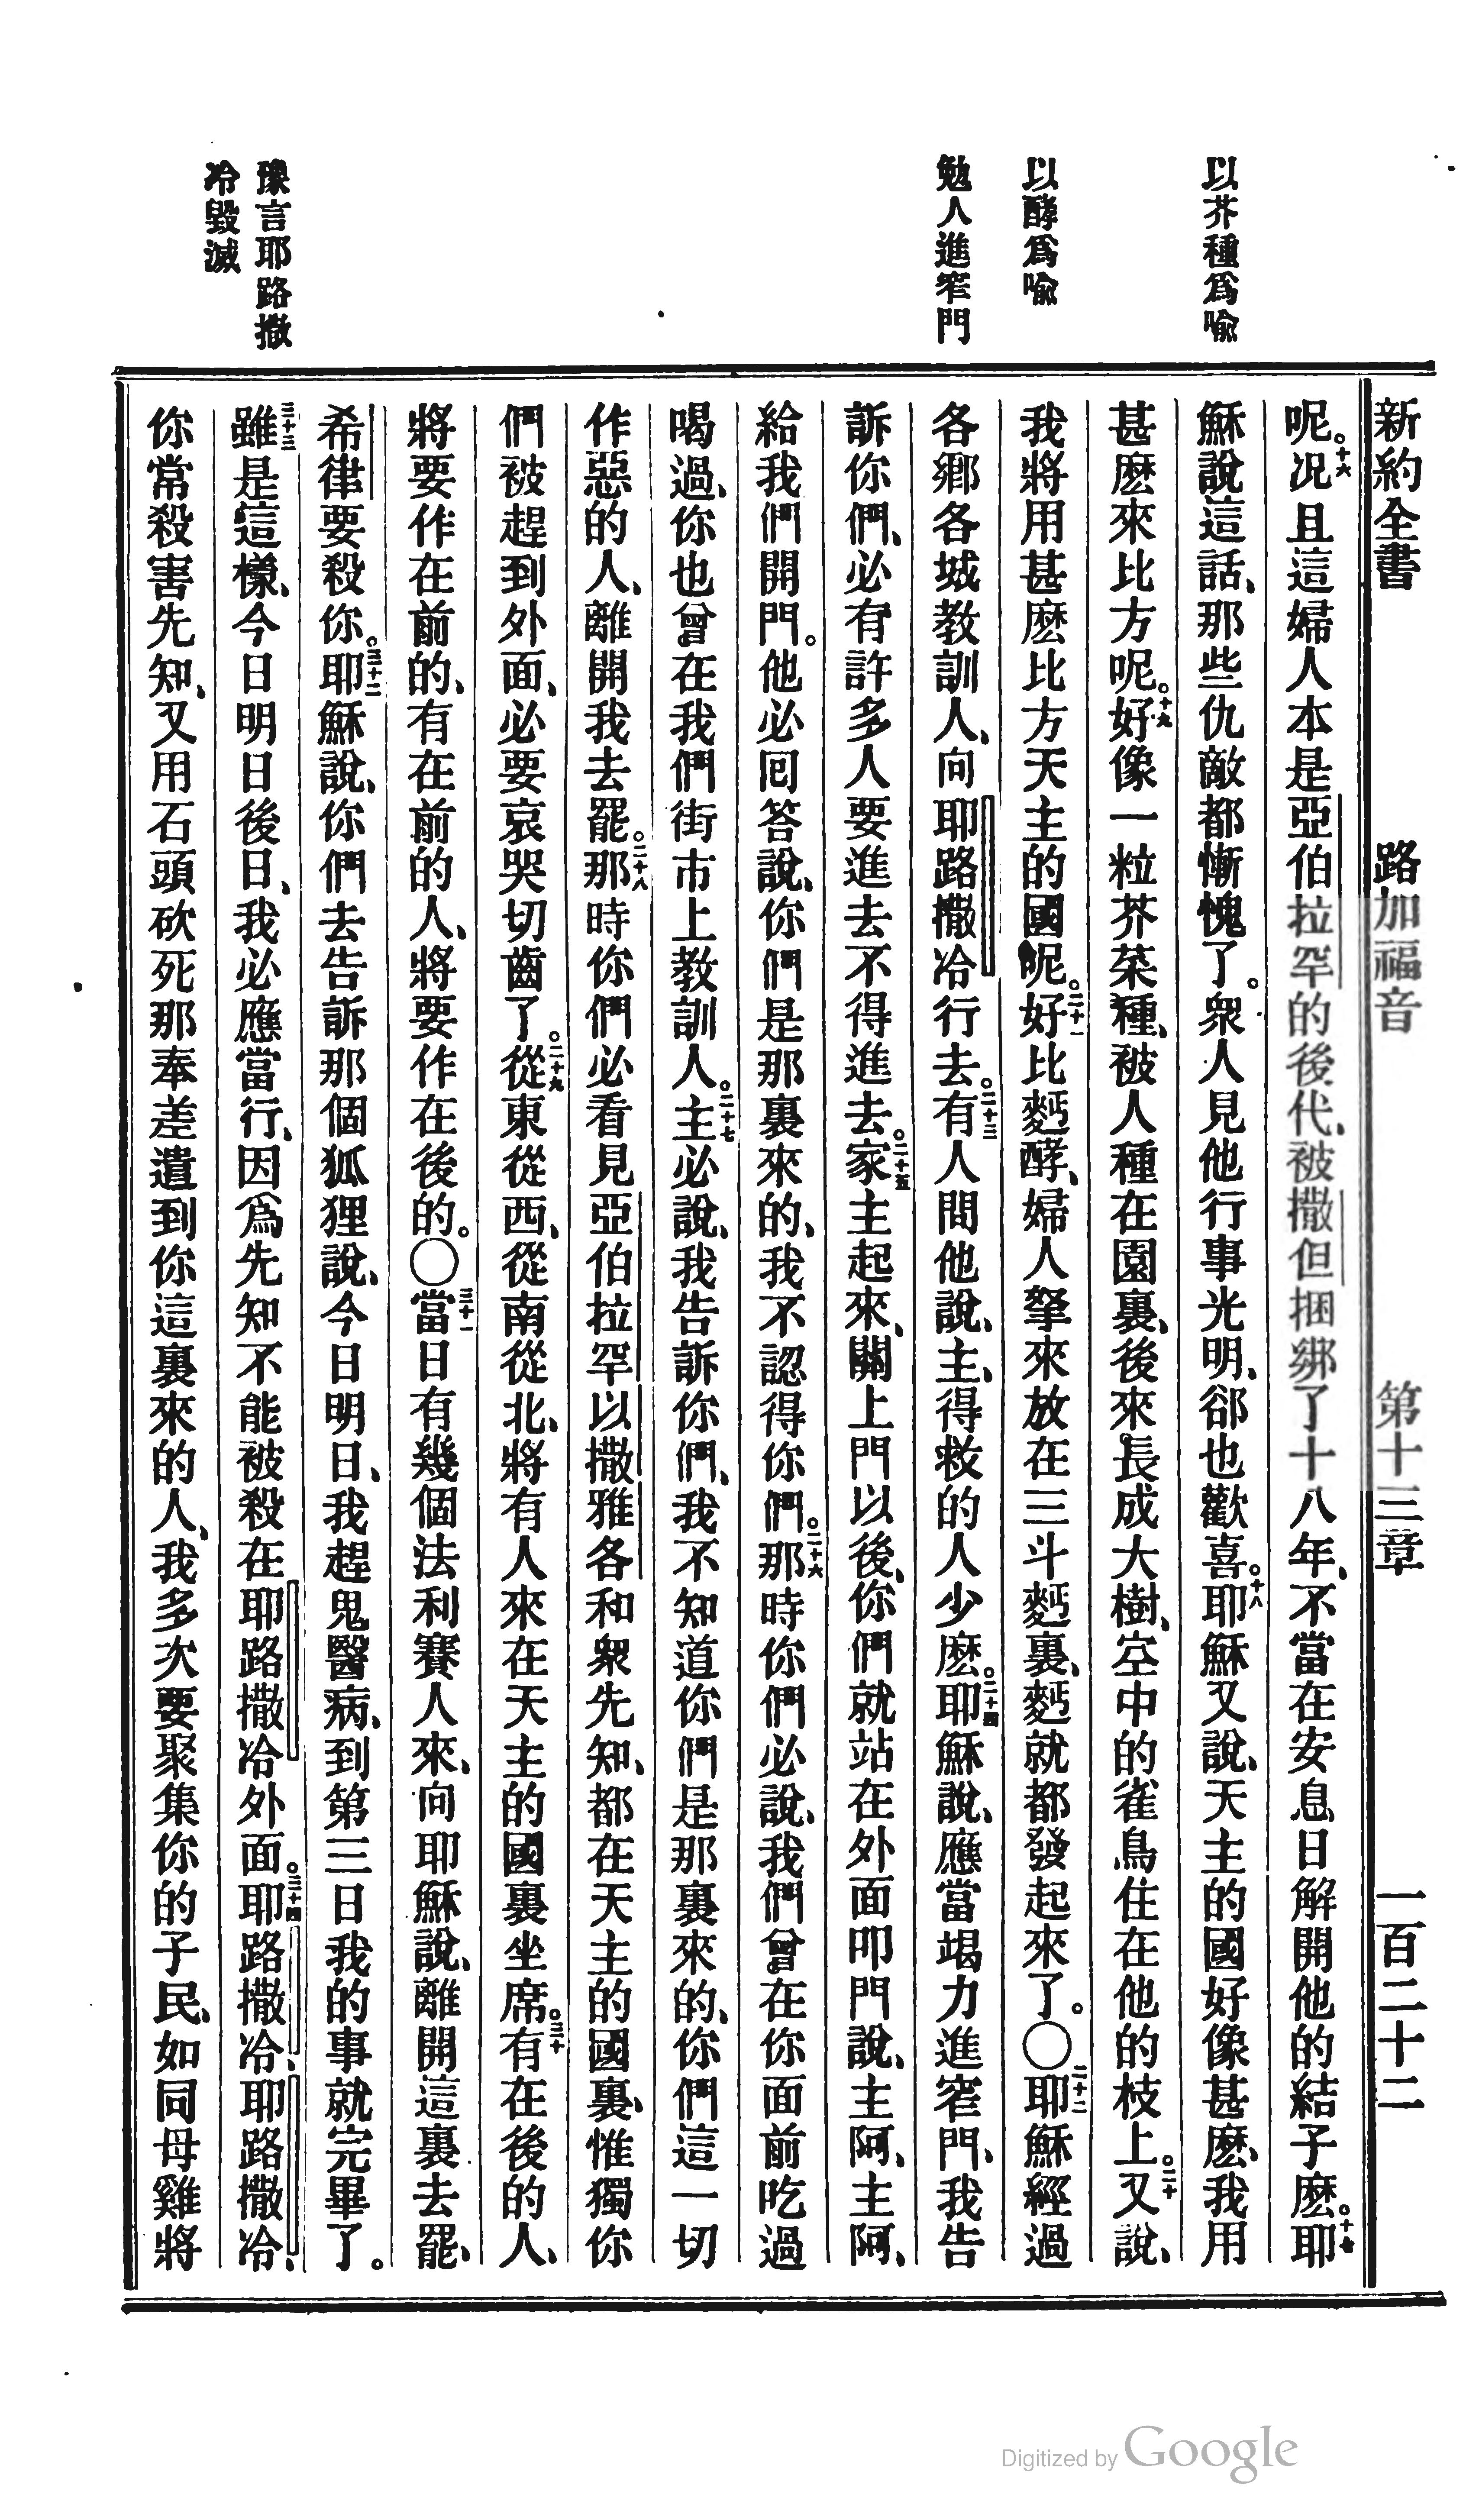 新約全書 路加福音 第十三章 一百二十二
以芥種爲喩
以酵爲喩
勉人進窄門
豫言耶路撒
冷毀滅
呢。十六况且這婦人本是亞伯拉罕的後代、被撒但捆綁了十八年、不當在安息日解開他的結子麽。十七耶
穌說這話、那些仇敵都慚愧了。衆人見他行事光明、卻也歡喜。十八耶穌又說、天主的國好像甚麽、我用
甚麽來比方呢。十九好像一粒芥菜種、被人種在園裏、後來長成大樹、空中的雀鳥住在他的枝上。二十又說、
我將用甚麽比方天主的國呢。二十一好比麪酵、婦人拏來放在三斗麪裏、麪就都發起來了。〇二十二耶穌經過
各鄉各城教訓人、向耶路撒冷行去。二十三有人問他說、主、得救的人少麽。二十四耶穌說、應當竭力進窄門、我告
訴你們、必有許多人要進去不得進去。二十五家主起來、關上門以後、你們就站在外面叩門說、主阿、主阿、
給我們開門。他必回答說、你們是那裏來的、我不認得你們。二十六那時你們必說、我們曾在你面前吃過
喝過、你也曾在我們街市上教訓人。二十七主必說、我告訴你們、我不知道你們是那裏來的、你們這一切
作惡的人、離開我去罷。二十八那時你們必看見亞伯拉罕以撒雅各和衆先知、都在天主的國裏、惟獨你
們被趕到外面、必要哀哭切齒了。二十九從東從西、從南從北、將有人來在天主的國裏坐席。三十有在後的人、
將要作在前的、有在前的人、將要作在後的。〇三十一當日有幾個法利賽人來、向耶穌說、離開這裏去罷、
希律要殺你。三十二耶穌說、你們去告訴那個狐狸說、今日明日、我趕鬼醫病、到第三日我的事就完畢了。
三十三雖是這樣、今日明日後日、我必應當行、因爲先知不能被殺在耶路撒冷外面。三十四耶路撒冷、耶路撒冷、
你常殺害先知、又用石頭砍死那奉差遣到你這裏來的人、我多次要聚集你的子民、如同母雞將
Digitized by Google